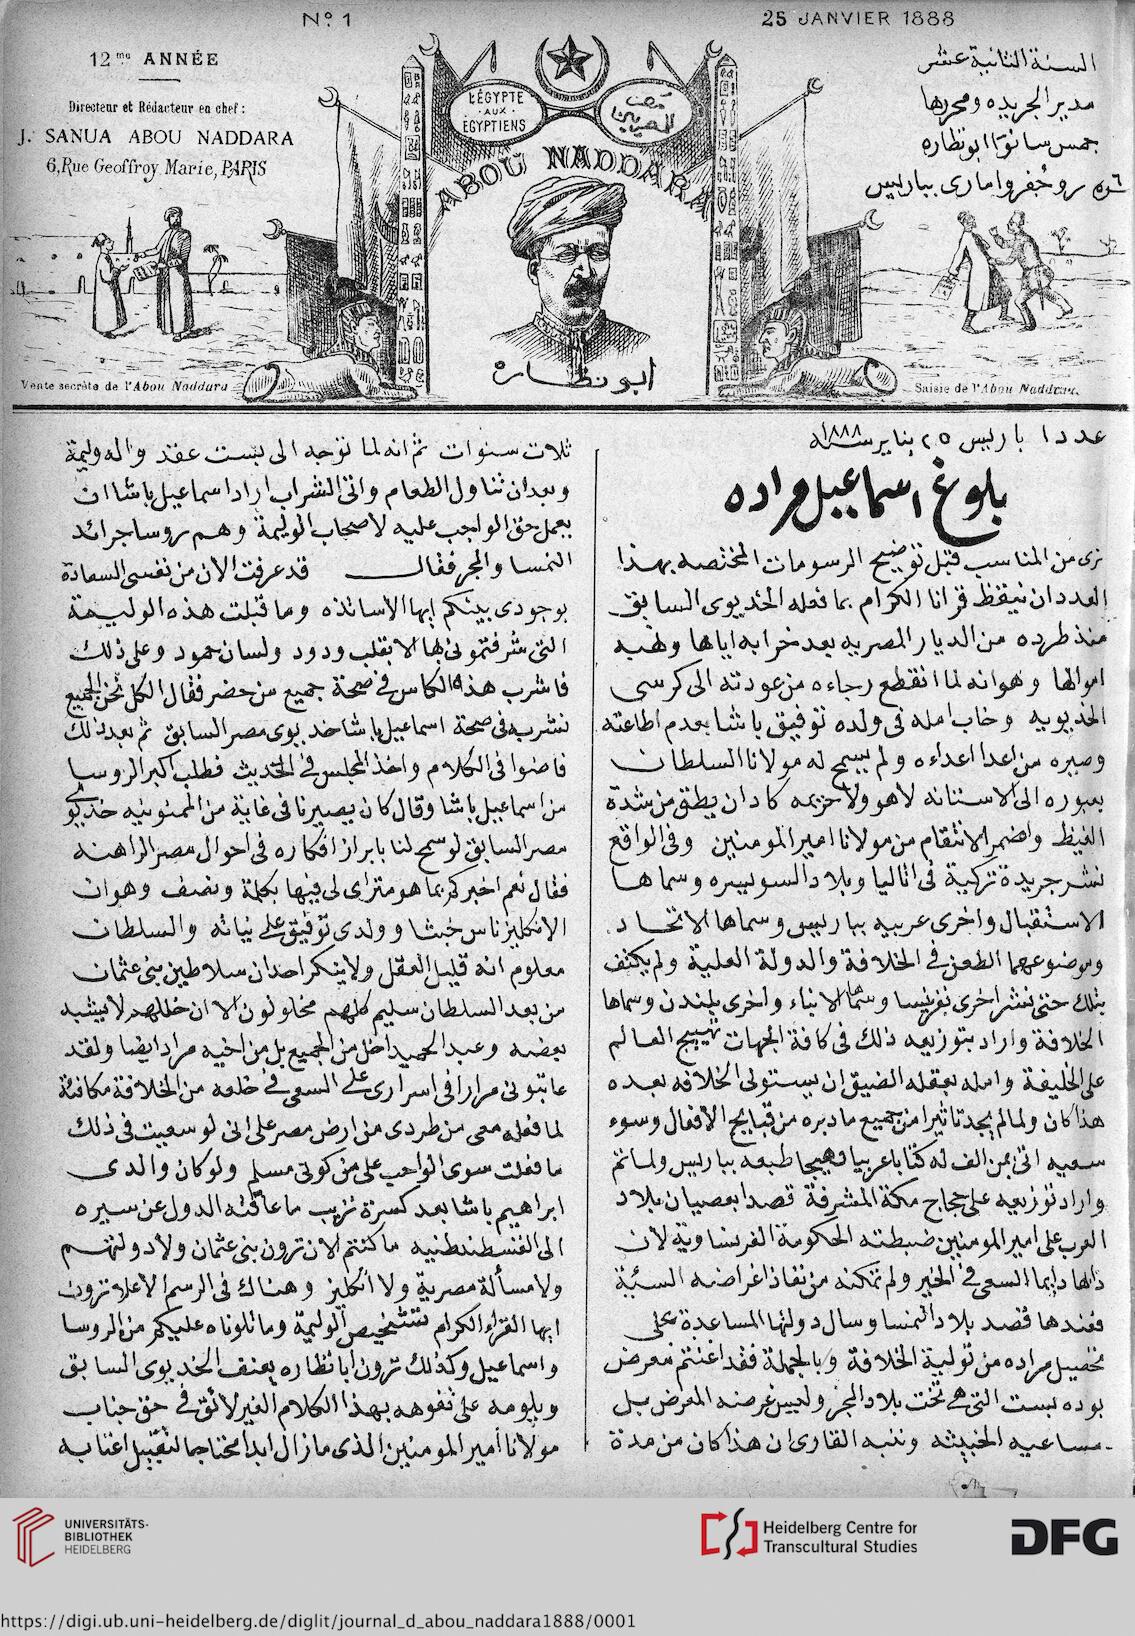 Nº 1
25 JANVIER 1888
12me ANNÉE
Directeur et Rédacteur en chef:
J. SANUA ABOU NADDARA
6, Rue Geoffroy Marie, PARIS
Vente secrète de l'Abou Naddara
L'ÉGYPTE
AUX
ÉGYPTIENS
مصر
للمصريين
ABOU NADDARA
ابو نظاره
السنة الثانية عشر
مدير الجريده ومحررها
جمس سانوا ابو نظاره
نمره ٦ رو جفروا مارى بباريس
Saisie de l'Abou Naddara.
عدد ١ باريس ٢٥ يناير سنة ١٨٨٨
بلوغ اسماعيل مراده
نرى من المناسب قبل توضيح الرسومات المختصه بهذا
العدد ان نيقظ قرانا الكرام بما فعله الخديوى السابق
منذ طرده من الديار المصريه بعد خرابه اياها ونهبه
اموالها وهو انه لما انقطع رجاءه من عودته الى كرسى
الخديويه وخاب امله فى ولده توفيق باشا بعدم اطاعته
وصيره من اعدا اعداءه ولم يسمح له مولانا السلطان
بعبوره الى الاستانه لا هو ولا حريمه كاد ان يطق من شدة
الغيظ واضمر الانتقام من مولانا امير المومنين وفى الواقع
نشر جريدة تركية فى اتاليا وبلاد السويسره وسماها
الاستقبال واخرى عربيه بباريس وسماها الاتحاد.
وموضوعهما الطعن فى الخلافة والدولة العلية ولم يكتف
بتلك حتى نشر اخرى بفرنسا وسماها الانباء واخرى بلندن وسماها
الخلافة واراد بتوزيعه ذلك فى كافة الجهات تهييج العالم
على الخليفة وامله بعقله الضيق ان يستولى الخلافه بعده
هذا كان ولما لم يجد تاثيرا من جميع ما دبره من قبايح الافعال وسوء
سعيه اتى بمن الف له كتابا عربيا وهيجا طبعه بباريس ولما تم
واراد توزيعه على حجاج مكة المشرفة قصدا بعصيان بلاد
العرب على امير المومنين ضبطته الحكومة الفرنساوية لان
دابها دايما السعى فى الخير ولم تمكنه من نفاذ اغراضه السئية
فعندها قصد بلاد النمسا وسال دولتها المساعدة على
تحصيل مراده من تولية الخلافة وبالجملة فقد اغتنم معرض
بوده بست التى هى تخت بلاد المجر وليس غرضه المعرض بل
مساعيه الخبيثه وننبه القارى ان هذا كان من مدة
ثلاث سنوات ثم انه لما توجه الى بست عقد واله وليمة
وبعد ان تناول الطعام واتى الشراب اراد اسماعيل باشا ان
يعمل حق الواجب عليه لاصحاب الوليمة وهم روسا جرائد
النمسا والمجر فقال قد عرفت الان من نفسى السعادة
بوجودى بينكم ايها الاساتذه وما قبلت هذه الوليمة
التى شرفتمونى بها الا بقلب ودود ولسان حمود وعلى ذلك
فاشرب هذا الكاس فى صحة جميع من حضر فقال الكل نحن الجميع
نشربه فى صحة اسماعيل باشا خديوى مصر السابق ثم بعد ذلك
فاضوا فى الكلام واخذ المجلس فى الحديث فطلب اكبر الروسا
من اسماعيل باشا وقال كان يصيرنا فى غاية من الممنونيه خديوى
مصر السابق لو سمح لنا بابراز افكاره فى احوال مصر الراهنه
فقال نعم اخبركم بما هو متراى لى فيها بكلمة ونصف وهو ان
الانكليز ناس خبثا وولدى توفيق على نياته والسلطان
معلوم انه قليل العقل ولا ينكر احد ان سلاطين بنى عثمان
من بعد السلطان سليم كلهم مخلولون الا ان خللهم لا يشبه
بعضه وعبد الحميد اخل من الجميع بل من اخيه مراد ايضا ولقد
عاتبونى مرارا فى اسرارى على السعى فى خلعه من الخلافة مكافئة
لما فعله معى من طردى من ارض مصر على انى لو سعيت فى ذلك
ما فعلت سوى الواجب على من كونى مسلم ولو كان والدى
ابراهيم باشا بعد كسرة نزيب ما عاقته الدول عن سيره
الى القسطنطنيه ما كنتم الان ترون بنى عثمان ولا دولتهم
ولا مسألة مصرية ولا انكليز وهناك فى الرسم الاعلا ترون
ايها القراء الكرام تشخيص الوليمة وما تلوناه عليكم من الروسا
واسماعيل وكذلك ترون ابا نظاره يعنف الخديوى السابق
ويلومه على تفوهه بهذا الكلام الغير لائق فى حق جناب
مولانا امير المومنين الذى ما زال ابدا محتاجا لتقبيل اعتابه
UNIVERSITÄTS-
BIBLIOTHEK
HEIDELBERG
Heidelberg Centre for
Transcultural Studies
DFG
https://digi.ub.uni-heidelberg.de/diglit/journal_d_abou_naddara1888/0001